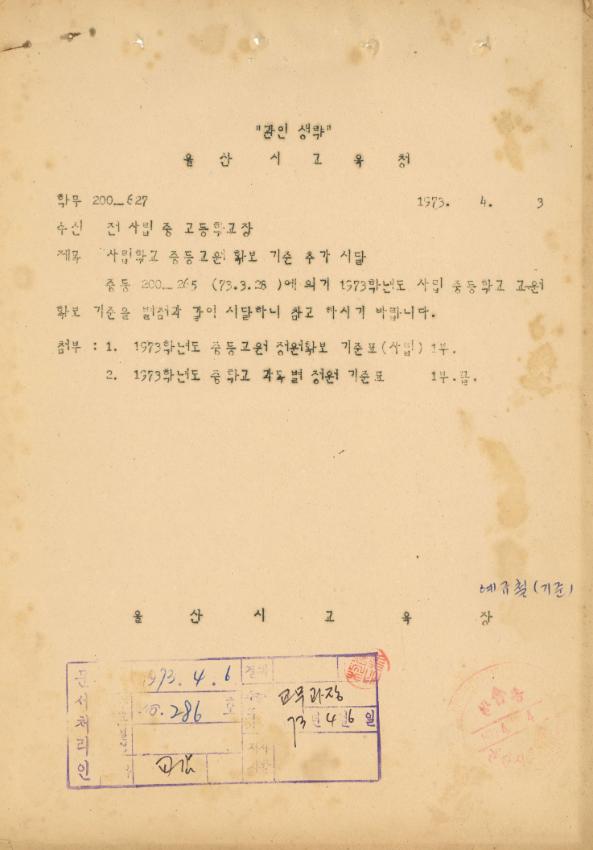 "관인 생략"
울 산 시 교 육 청
학무 200_627 1973. 4. 3
수신 전 사립 중 고등학교장
제목 사립학교 중등교원 확보 기준 추가 시달
중등 200_265 (73.3.28 )에 의거 1973학년도 사립 중등학교 교원
확보 기준을 별첨과 같이 시달하니 참고 하시기 바랍니다.
첨부 : 1. 1973학년도 중등교원 정원확보 기준표(사립) 1부.
2. 1973학년도 중학교 과목별 정원 기준표 1부.끝.
예규철(기준)
울 산 시 교 육 장
문서처리인
1973. 4. 6
286 호
교감
교무과장
73년 4월 6일